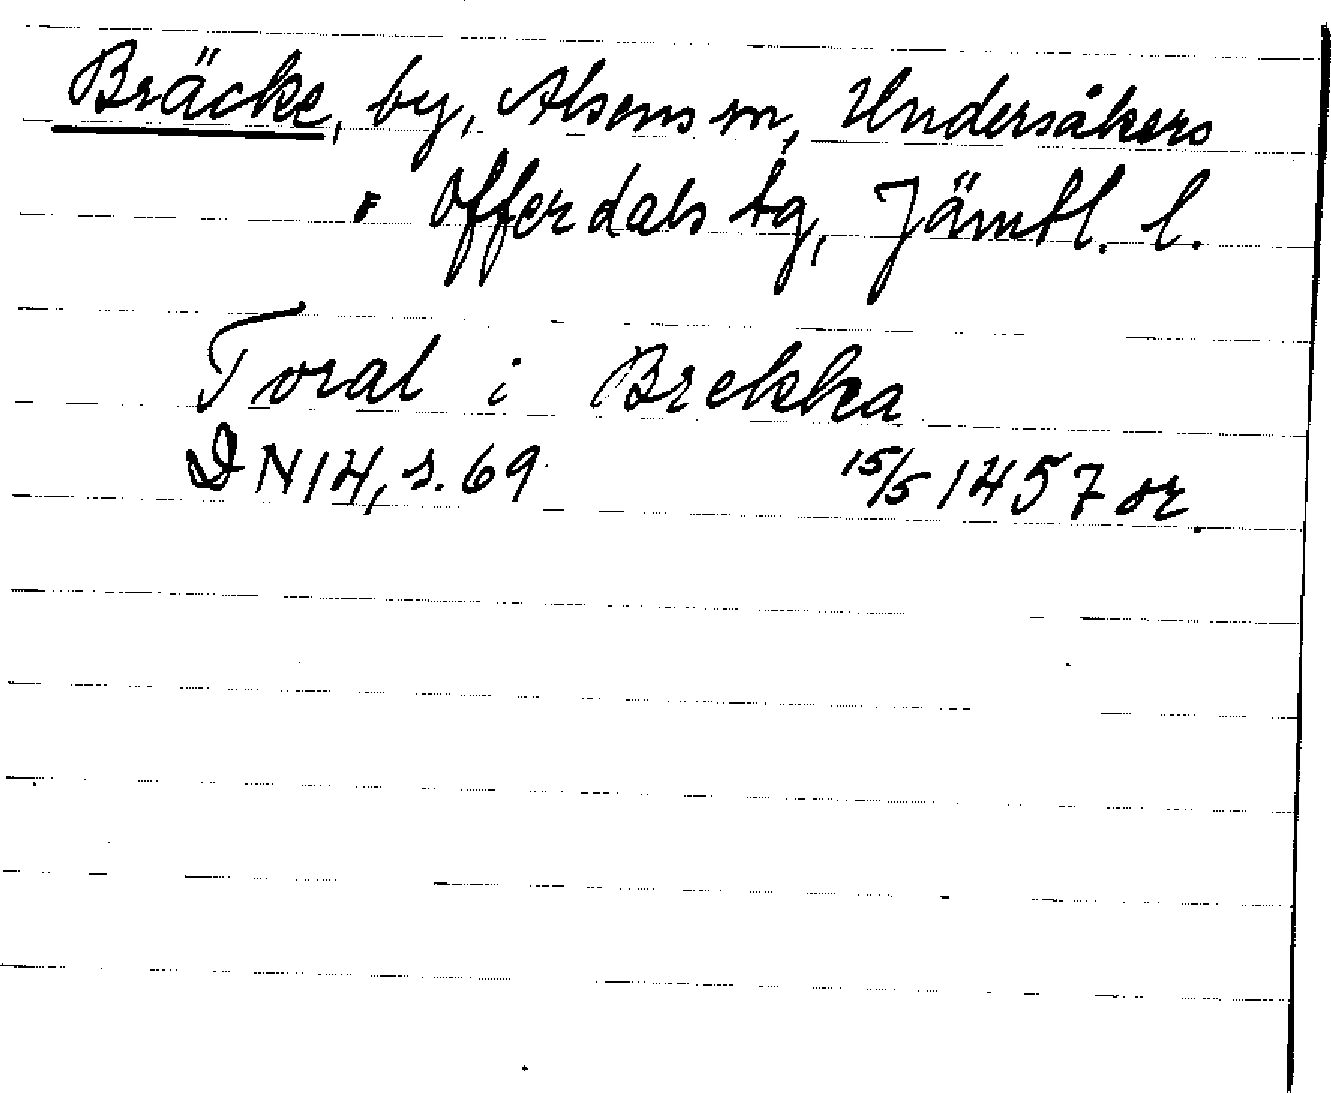 Bräcke, by, Alsens sn, Undersåkers
o Offerdals tg, Jämtl. l.
Toral i Brekka
DN 14, s. 69 15/5 1457 or.